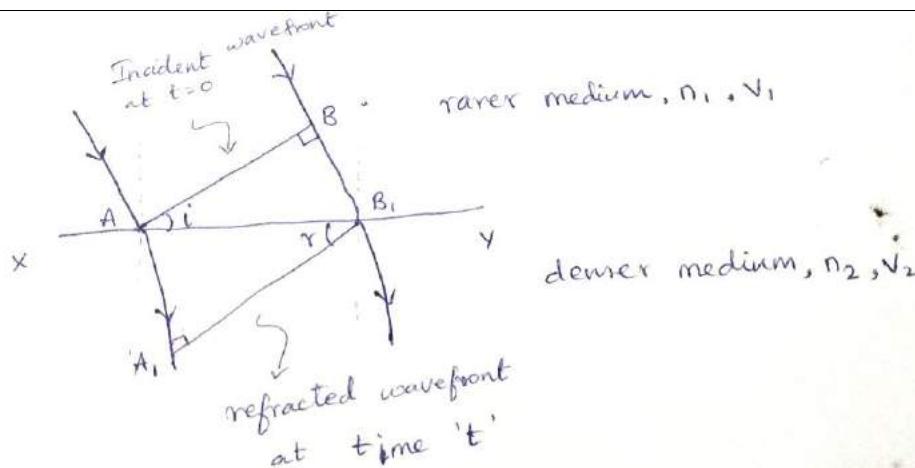 Incident wavefront
at t=0
B
rarer medium, n₁, v₁
A
i
B₁
r
X
Y
denser medium, n₂, v₂
A₁
refracted wavefront
at time 't'